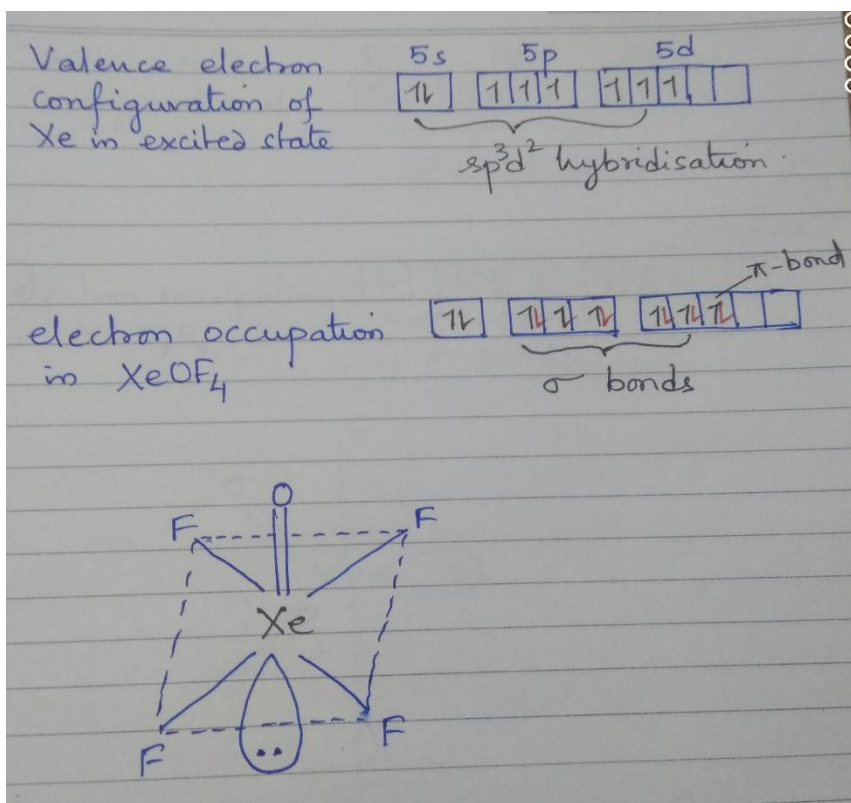 5s 5p 5d
Valence electron
configuration of
Xe in excited state
1L 1 1 1 1 1 1
sp³d² hybridisation.
π-bond
electron occupation
in XeOF₄
1L 1L 1L 1L 1L 1L 1L
σ bonds
O
F F
Xe
F F